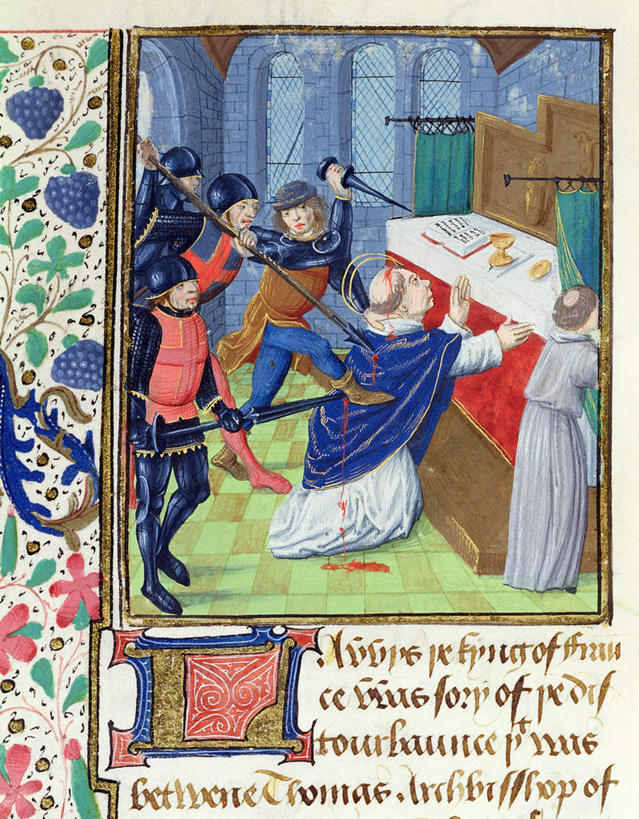 Lowys þe kyng of ffrau
ce was sory of þe dis
tourbaunce þᵗ was
betwene Thomas Archbisshop of